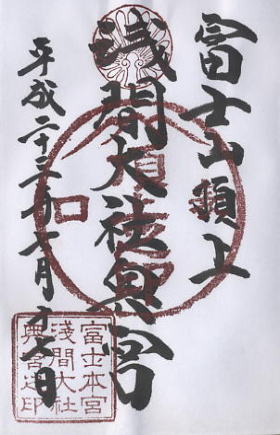 冨士山頂上
浅間大社奥宮
平成二十三年七月十六日
富士本宮
淺間大社
奥宮之印